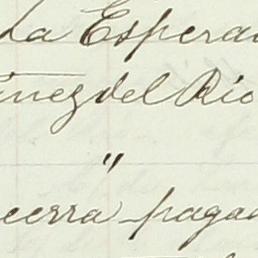 La Espera
inez del Rio
"
cerra pagad